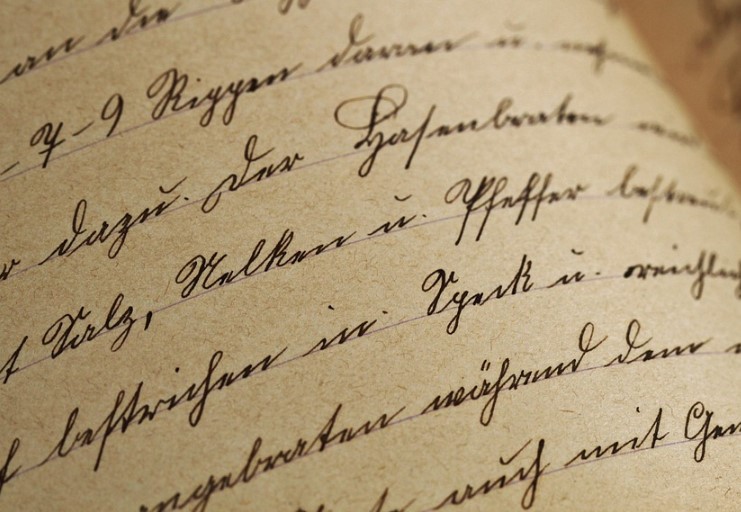 an die
– 7 – 9 Rippen daran u.
dazu. Der Hasenbraten
t Salz, Nelken u. Pfeffer bestreut
f bestrichen in Speck u. reichlich
angebraten während dem
auch mit Gem